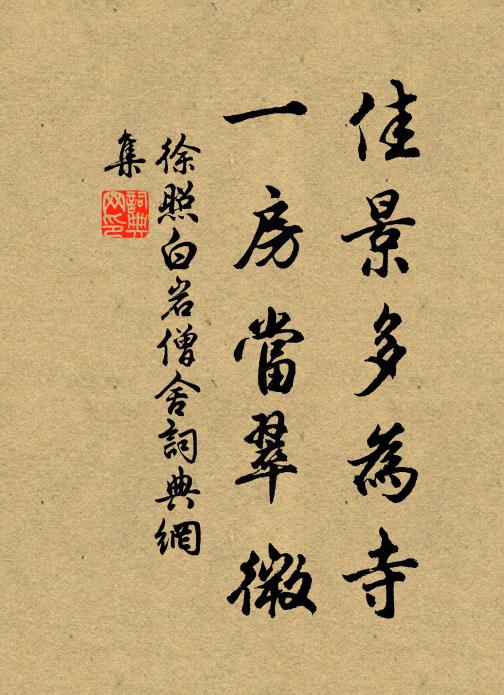 佳景多為寺
一房當翠微
徐照白岩僧舍詞典網
集
詞典网印